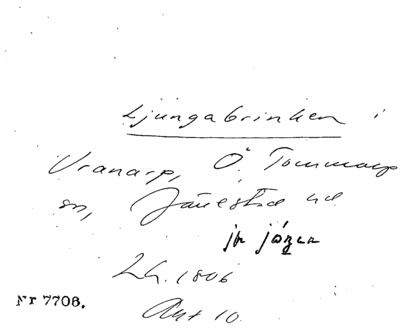 Ljungabrinken i
Vranarp, Ö. Tommarp
sn, Järrestad hd
jfr
Lh. 1806
Akt 10
Nr 7706.